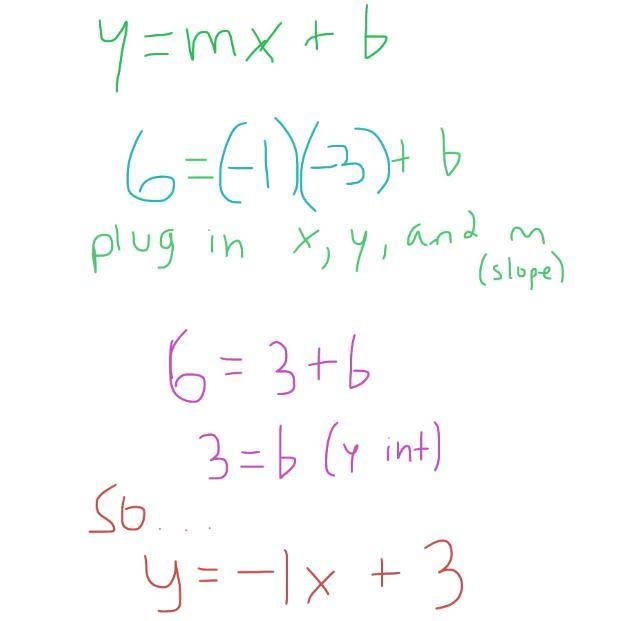 y = mx + b
6 = (-1)(-3) + b
plug in x, y, and m
(slope)
6 = 3 + b
3 = b (y int)
So....
y = -1x + 3